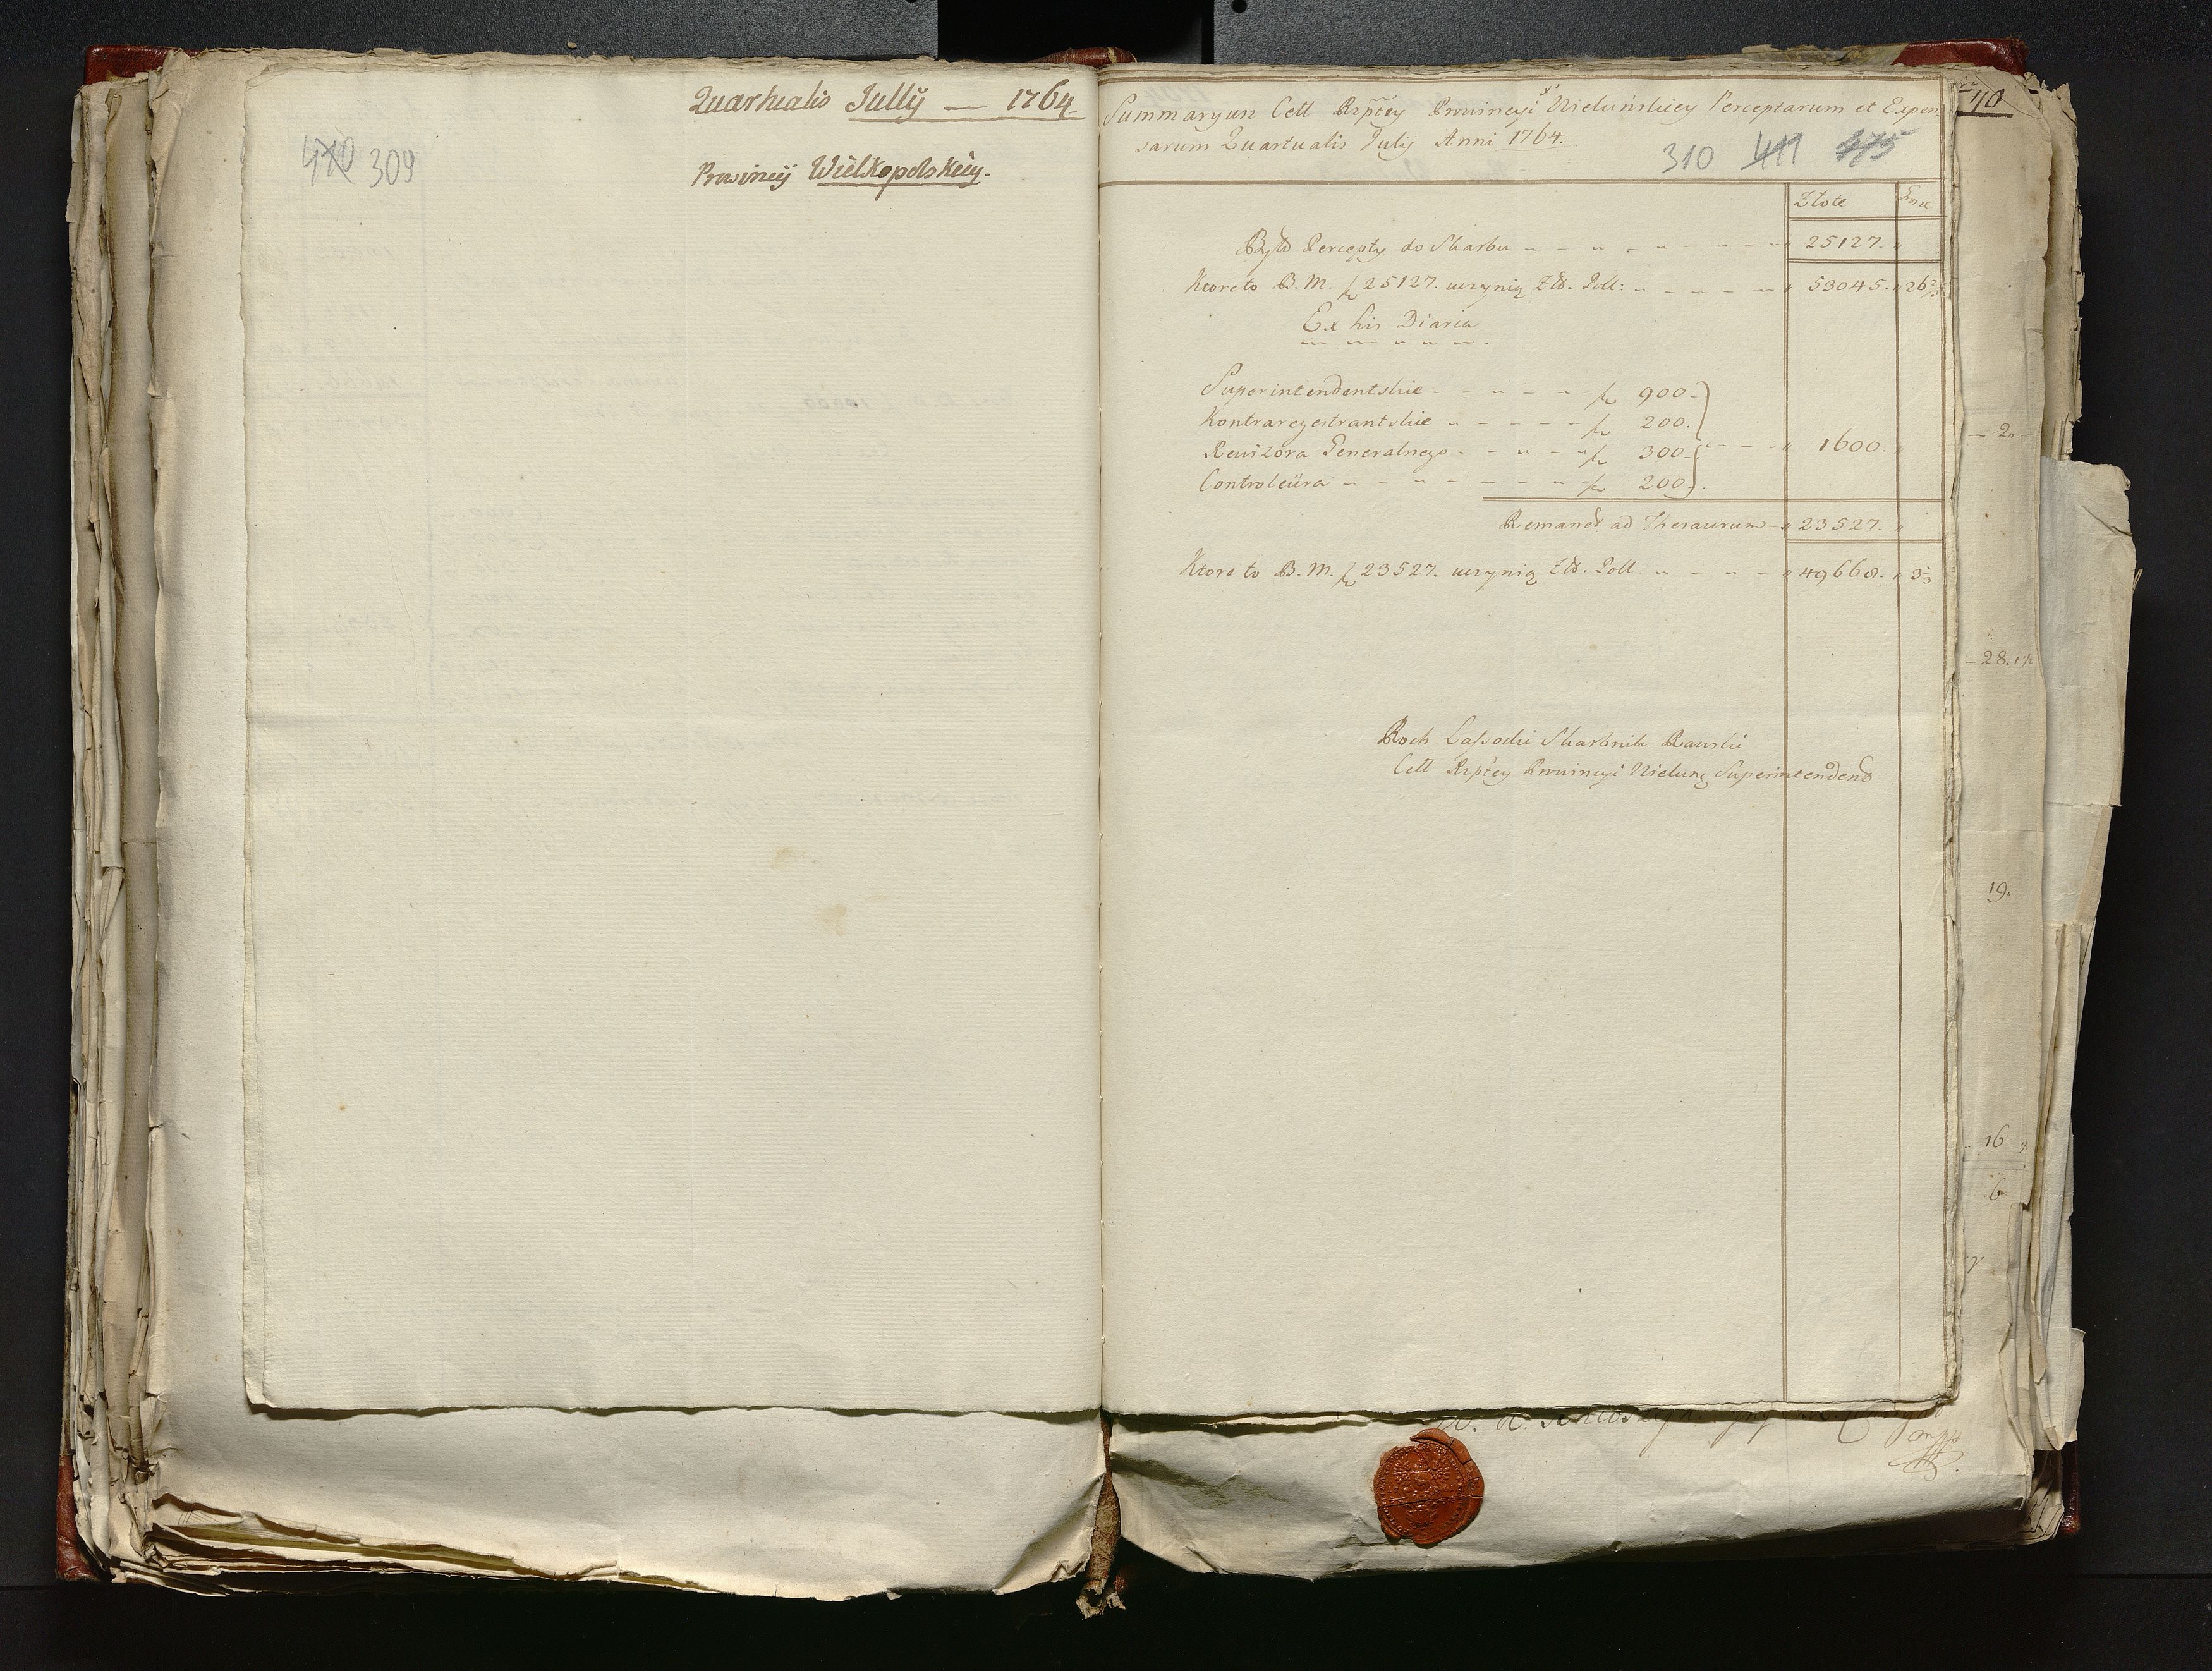 Quartualis Jullÿ — 1764
Prowincÿ Wielkopolskiey.
410 309
Summaryun Cell Rzptey Prwincyi Wieluńskiey Perceptarum et Expen
sarum Quartualis Julij Anni 1764.
310 411 475
Złote
Było Percepty do Skarbu 25127.
Ktore to B. M. 25127. uczynią Zł. Poll: 53045. 26 2/3
Ex his Diaria
Superintendentskie 900.
Kontraregestrantskie 200.
Rewizora Generalnego 300. 1600.
Controleüra 200.
Remanet ad Thesaurum 23527.
Ktore to B. M. 23527. uczynią Zł. Poll. 49668.
Roch Lassocki Skarbnik Rawski
Cell Rzptey Prwincyi Wielung Superintendend
28.
19.
16
6
mpp